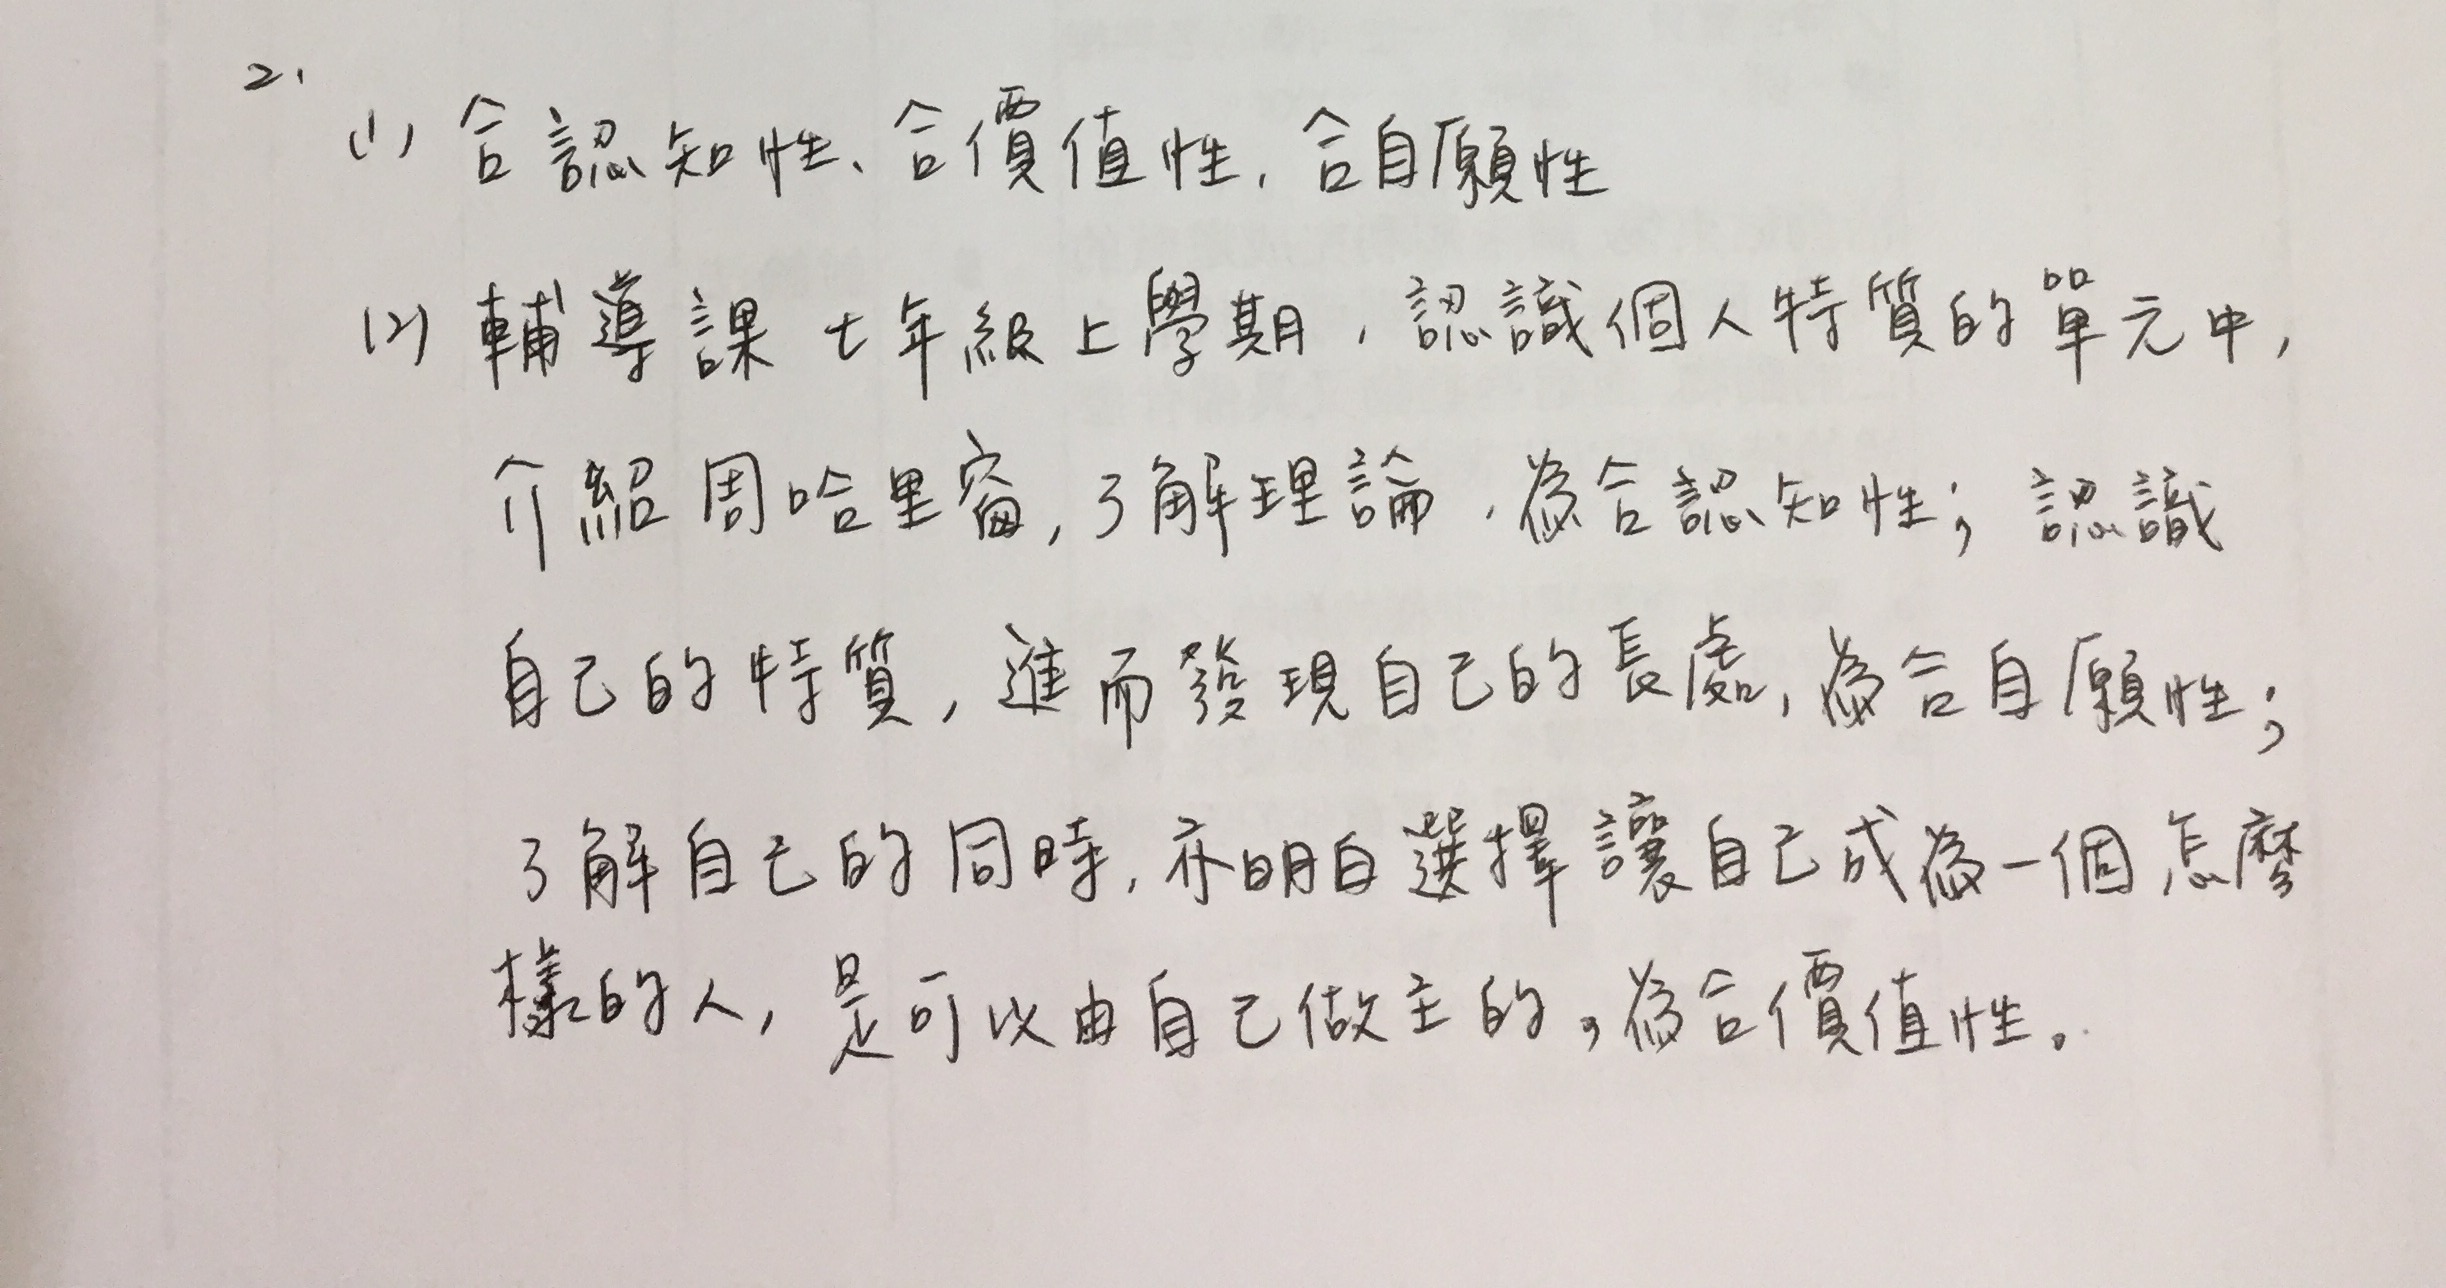 2.
(1) 合認知性、合價值性, 合自願性
(2) 輔導課 七年級上學期, 認識個人特質的單元中,
介紹周哈里窗, 了解理論, 為合認知性; 認識
自己的特質, 進而發現自己的長處, 為合自願性;
了解自己的同時, 亦明白選擇讓自己成為一個怎麼
樣的人, 是可以由自己做主的, 為合價值性。